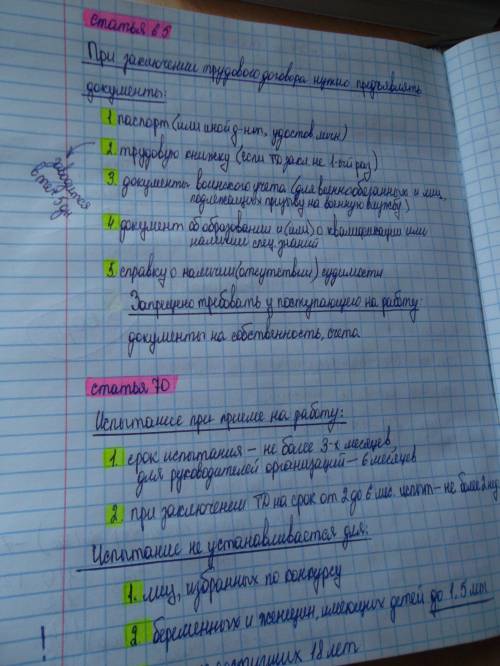 статья 65
При заключении трудового договора нужно предъявлять
документы:
1 паспорт (или иной д-нт, удостов. личн)
2. трудовую книжку (если ТД закл. не 1-ый раз)
заводится
в теч 5 дн
3. документы воинского учета (для военнообязанных и лиц,
подлежащих призыву на военную службу)
4 документ об образовании и (или) о квалификации или
наличии спец. знаний
5. справку о наличии (отсутствии) судимости
Запрещено требовать у поступающего на работу:
документы на собственность, счета
статья 70
Испытание при приеме на работу:
1. срок испытания - не более 3-х месяцев,
для руководителей организаций - 6 месяцев
2. при заключении ТД на срок от 2 до 6 мес. испыт - не более 2 нед
Испытание не устанавливается для:
1. лиц, избранных по конкурсу
2 беременных и женщин, имеющих детей до 1,5 лет
! 18 лет